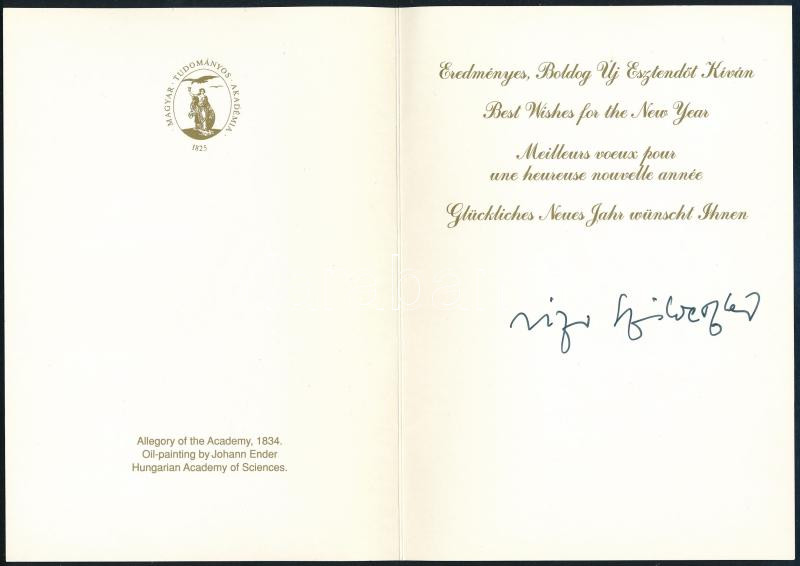 MAGYAR · TUDOMÁNYOS · AKADÉMIA ·
1825
Allegory of the Academy, 1834.
Oil-painting by Johann Ender
Hungarian Academy of Sciences.
Eredményes, Boldog Új Esztendőt Kíván
Best Wishes for the New Year
Meilleurs voeux pour
une heureuse nouvelle année
Glückliches Neues Jahr wünscht Ihnen